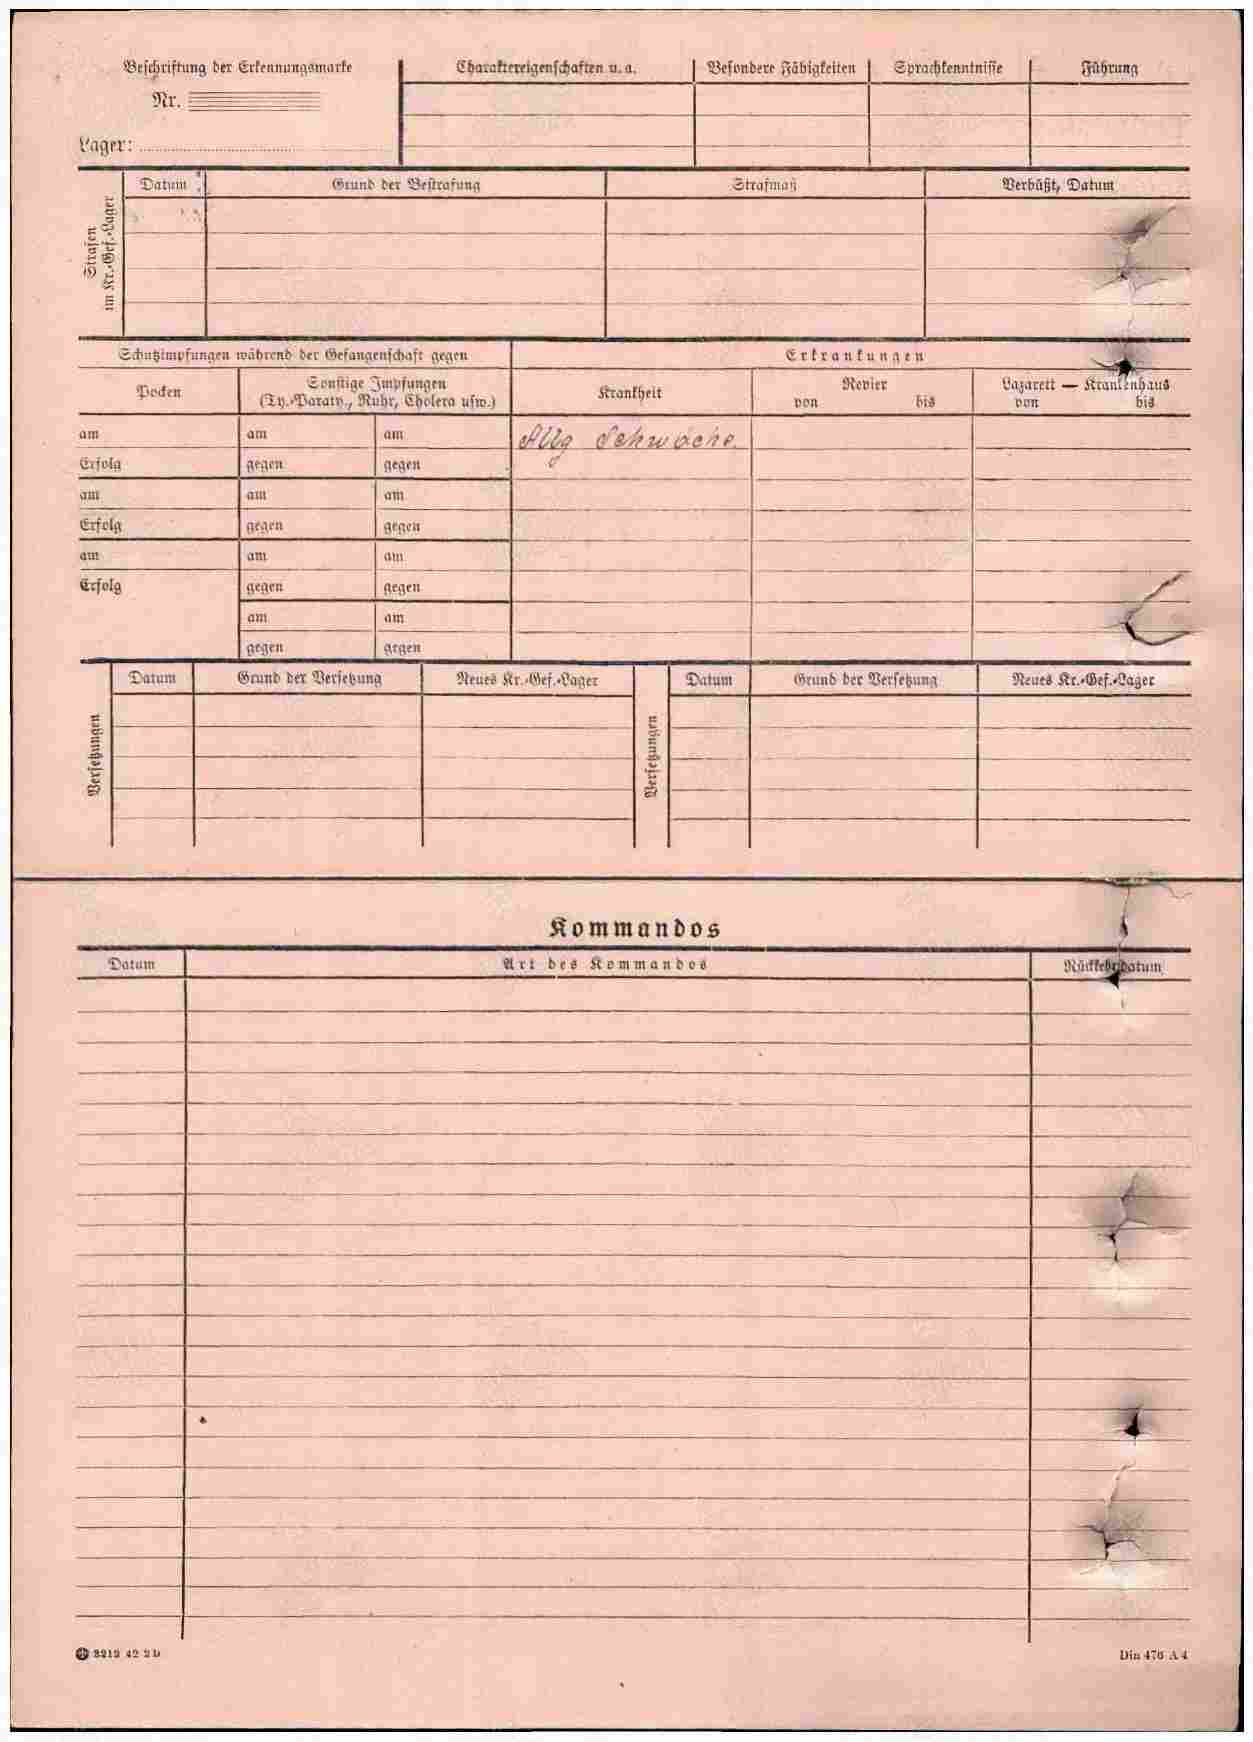 Beschriftung der Erkennungsmarke
Nr.
Lager:
Charaktereigenschaften u. a.
Besondere Fähigkeiten
Sprachkenntnisse
Führung
Strafen
im Kr.-Gef.-Lager
Datum
Grund der Bestrafung
Strafmaß
Verbüßt, Datum
Schutzimpfungen während der Gefangenschaft gegen
Erkrankungen
Pocken
Sonstige Impfungen
(Ty.-Paraty., Ruhr, Cholera usw.)
Krankheit
Revier
von bis
Lazarett — Krankenhaus
von bis
am am am Allg Schwäche.
Erfolg gegen gegen
am am am
Erfolg gegen gegen
am am am
Erfolg gegen gegen
am am
gegen gegen
Versetzungen
Datum Grund der Versetzung Neues Kr.-Gef.-Lager
Versetzungen
Datum Grund der Versetzung Neues Kr.-Gef.-Lager
Kommandos
Datum Art des Kommandos Rückkehrdatum
3212 42 2 D
Din 476 A 4